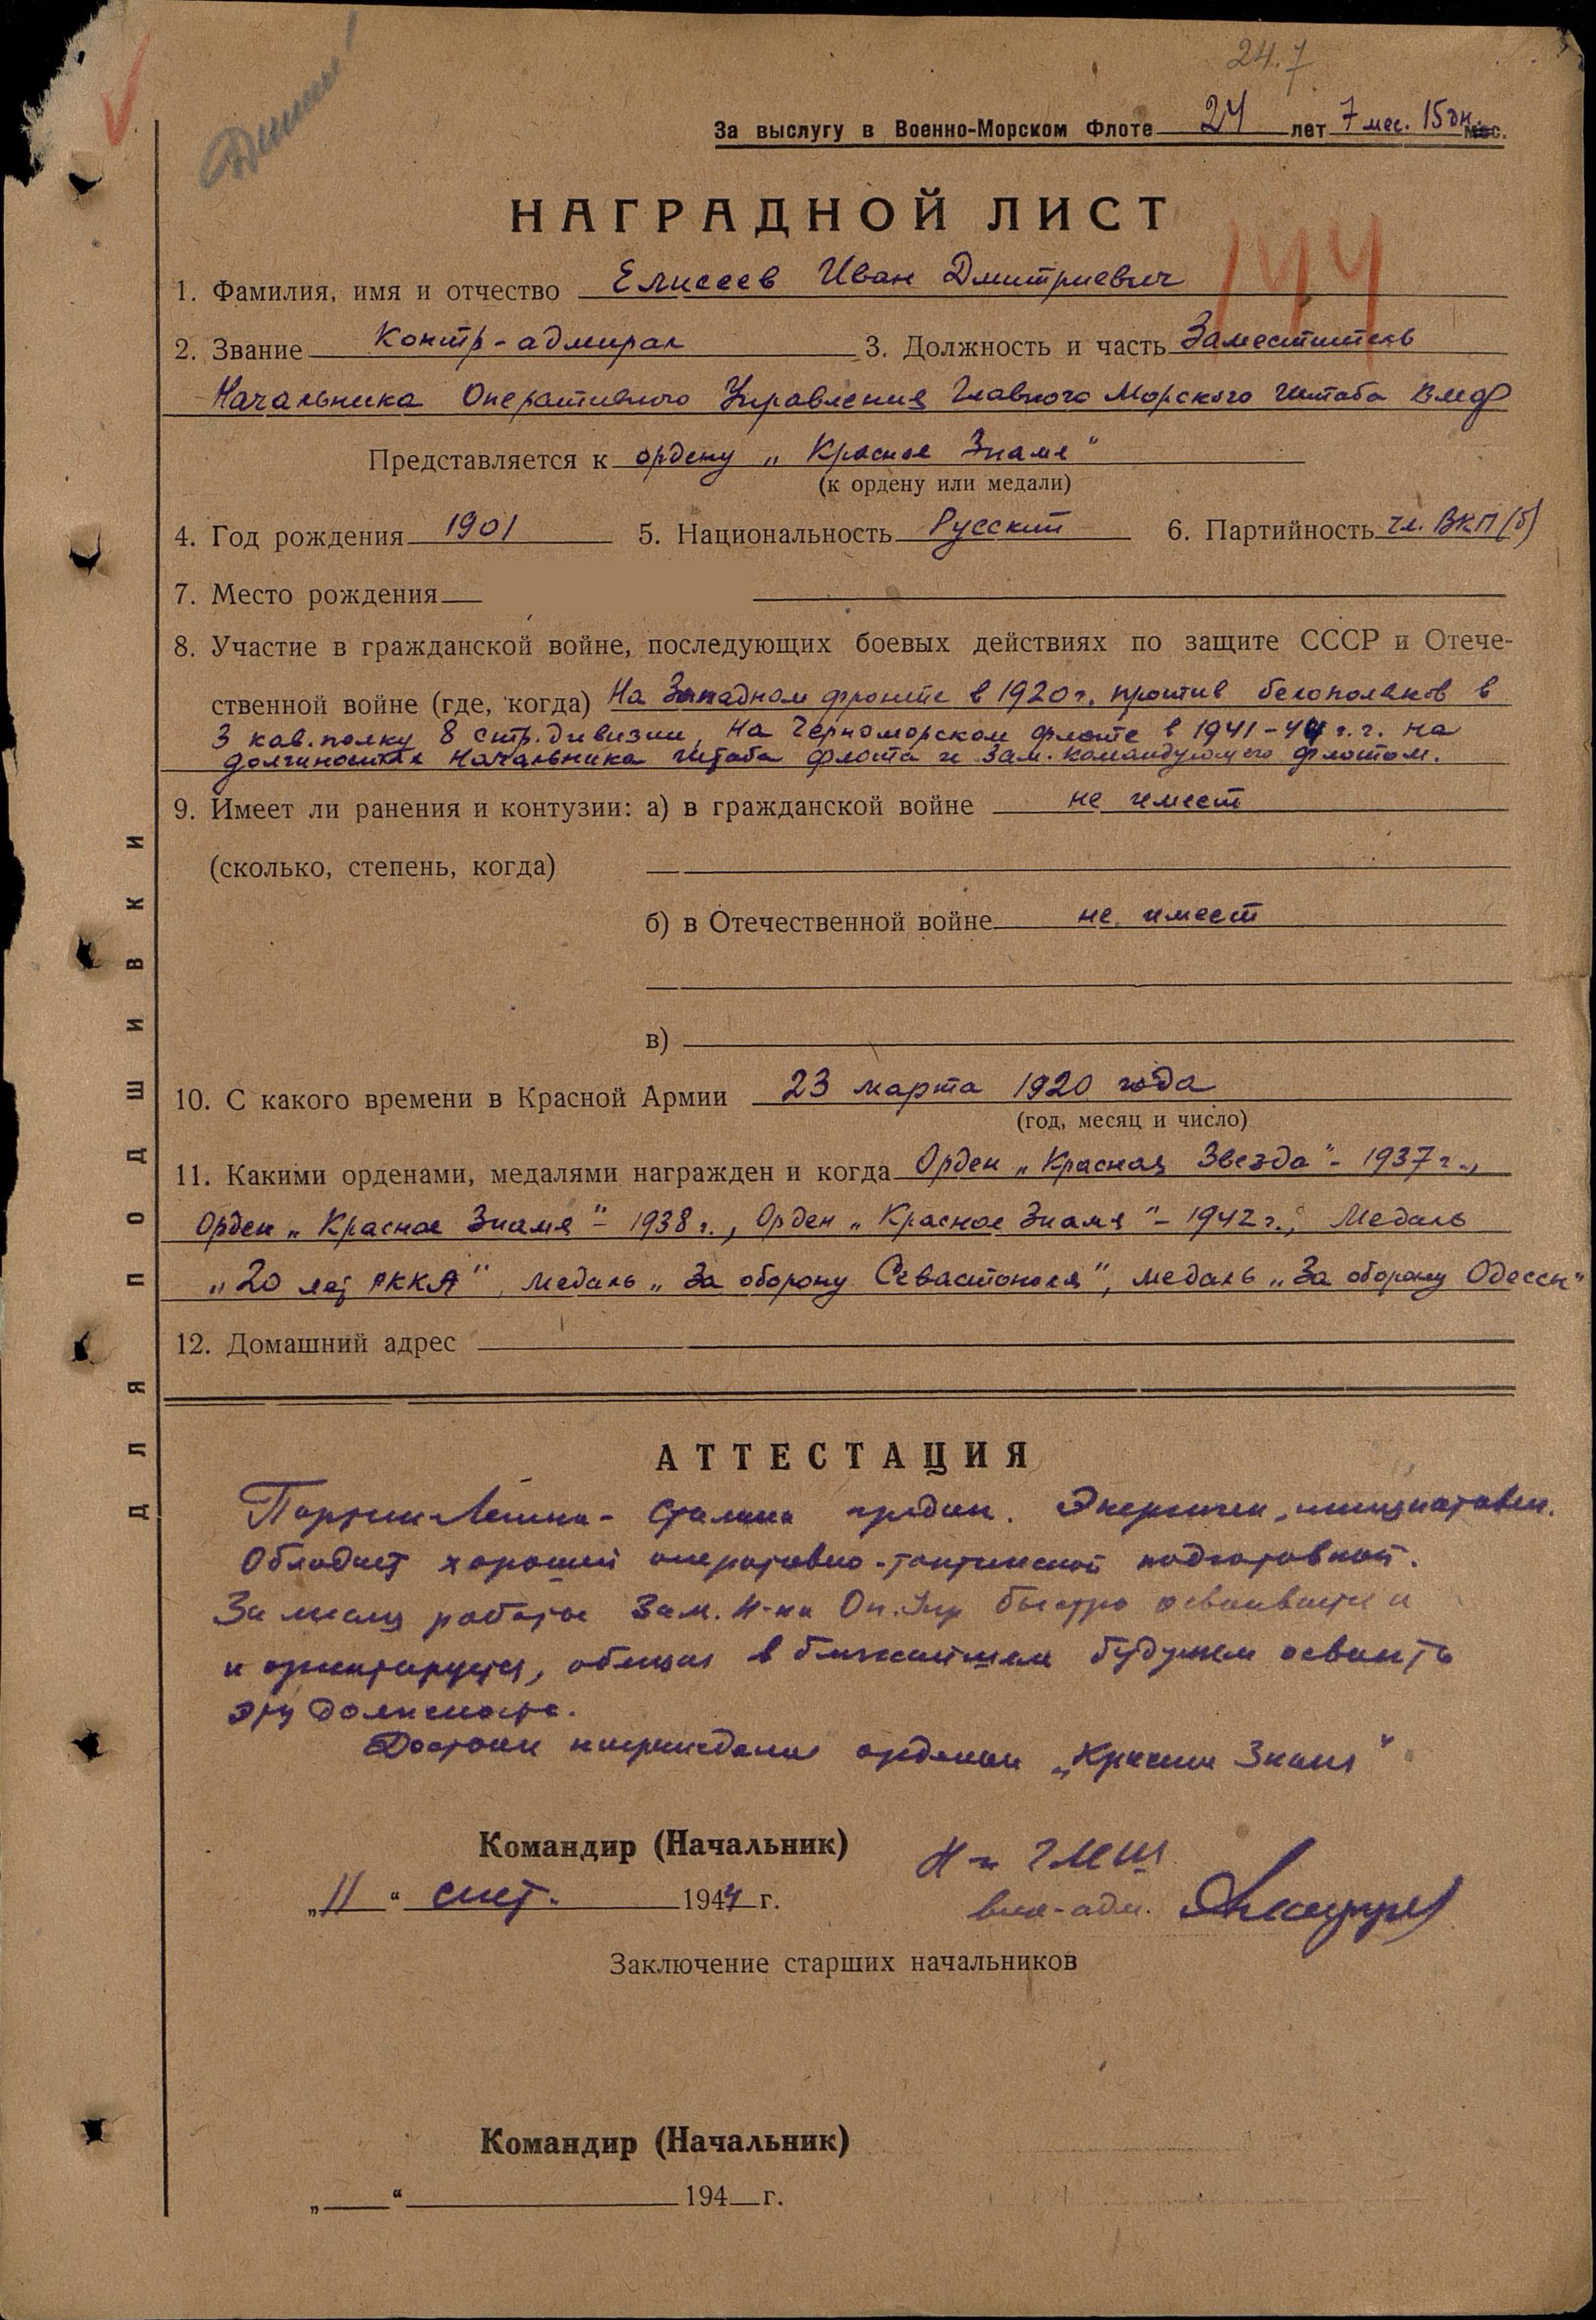 24.7
За выслугу в Военно-Морском Флоте 24 лет 7 мес. 15 дн. мес.
НАГРАДНОЙ ЛИСТ
144
1. Фамилия, имя и отчество Елисеев Иван Дмитриевич
2. Звание Контр-адмирал 3. Должность и часть Заместитель
Начальника Оперативного Управления Главного Морского Штаба ВМФ
Представляется к ордену „Красное Знамя"
(к ордену или медали)
4. Год рождения 1901 5. Национальность Русский 6. Партийность чл. ВКП(б)
7. Место рождения
8. Участие в гражданской войне, последующих боевых действиях по защите СССР и Отече-
ственной войне (где, когда) На Западном фронте в 1920 г. против белополяков в
3 кав. полку 8 стр. дивизии, На Черноморском флоте в 1941-44 г.г. на
должностях Начальника штаба флота и Зам. командующего флотом.
9. Имеет ли ранения и контузии: а) в гражданской войне не имеет
(сколько, степень, когда)
б) в Отечественной войне не имеет
в)
10. С какого времени в Красной Армии 23 марта 1920 года
(год, месяц и число)
11. Какими орденами, медалями награжден и когда Орден „Красная Звезда" - 1937 г.,
Орден „Красное Знамя" - 1938 г., Орден „Красное Знамя" - 1942 г., Медаль
„20 лет РККА", медаль „За оборону Севастополя", медаль „За оборону Одессы"
12. Домашний адрес
ДЛЯ ПОДШИВКИ
АТТЕСТАЦИЯ
Партии Ленина-Сталина предан. Энергичен, инициативен.
Обладает хорошей оперативно-тактической подготовкой.
За месяц работы Зам. Н-ка Оп. Упр быстро осваивается и
и ориентируется, обещая в ближайшем будущем освоить
эту должность.
Достоин награждения орденом „Красное Знамя"
Командир (Начальник) Н-к ГМШ
„11" сент. 1944 г. вице-адм.
Заключение старших начальников
Командир (Начальник)
„ " 194 г.